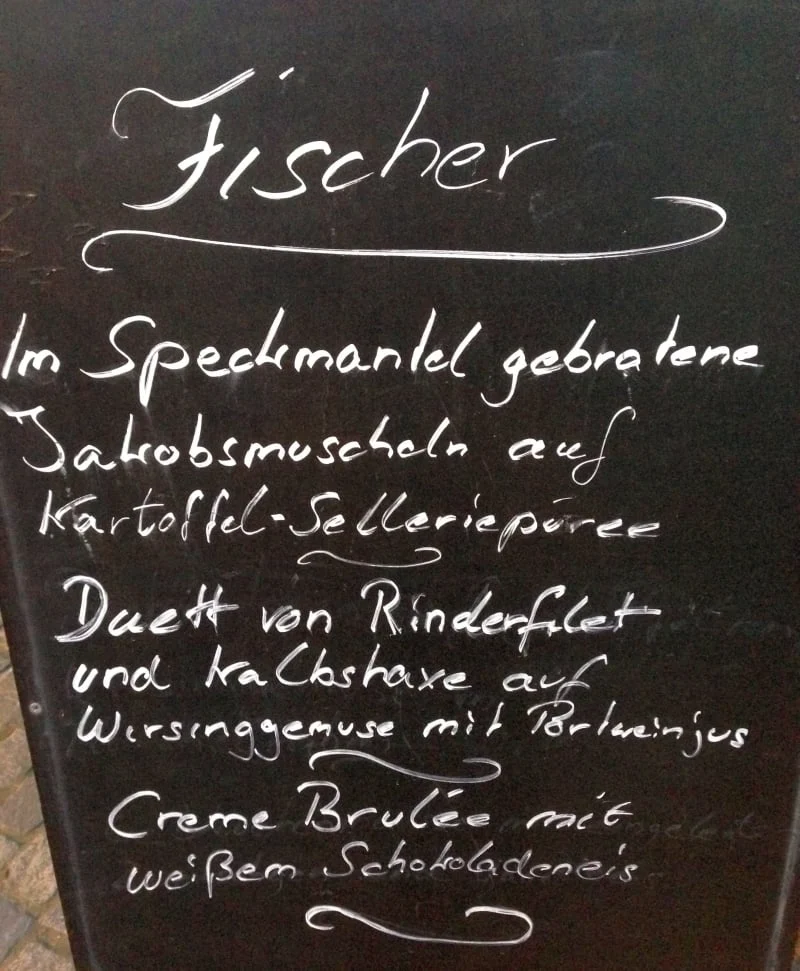 Fischer
Im Speckmantel gebratene
Jakobsmuscheln auf
Kartoffel-Selleriepüree
Duett von Rinderfilet
und Kalbshaxe auf
Wirsinggemüse mit Portweinjus
Creme Brulée mit
weißem Schokoladeneis